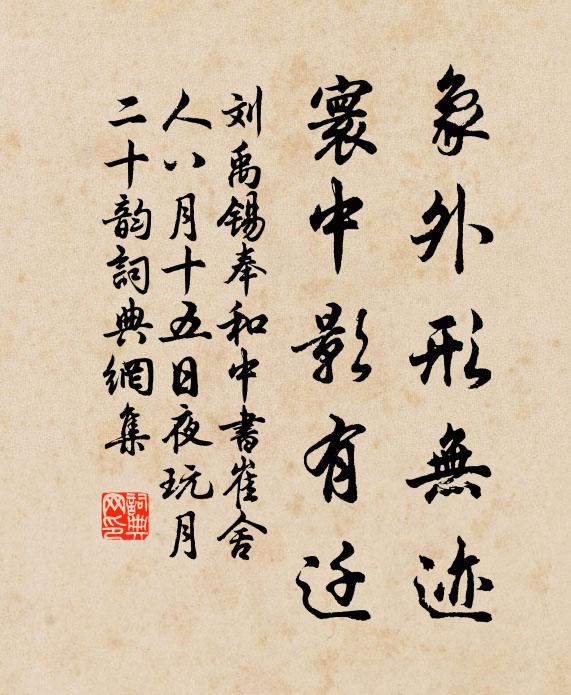 象外形無迹
寰中影有迁
刘禹锡奉和中書崔舍
人八月十五日夜玩月
二十韵詞典網集
詞典网印